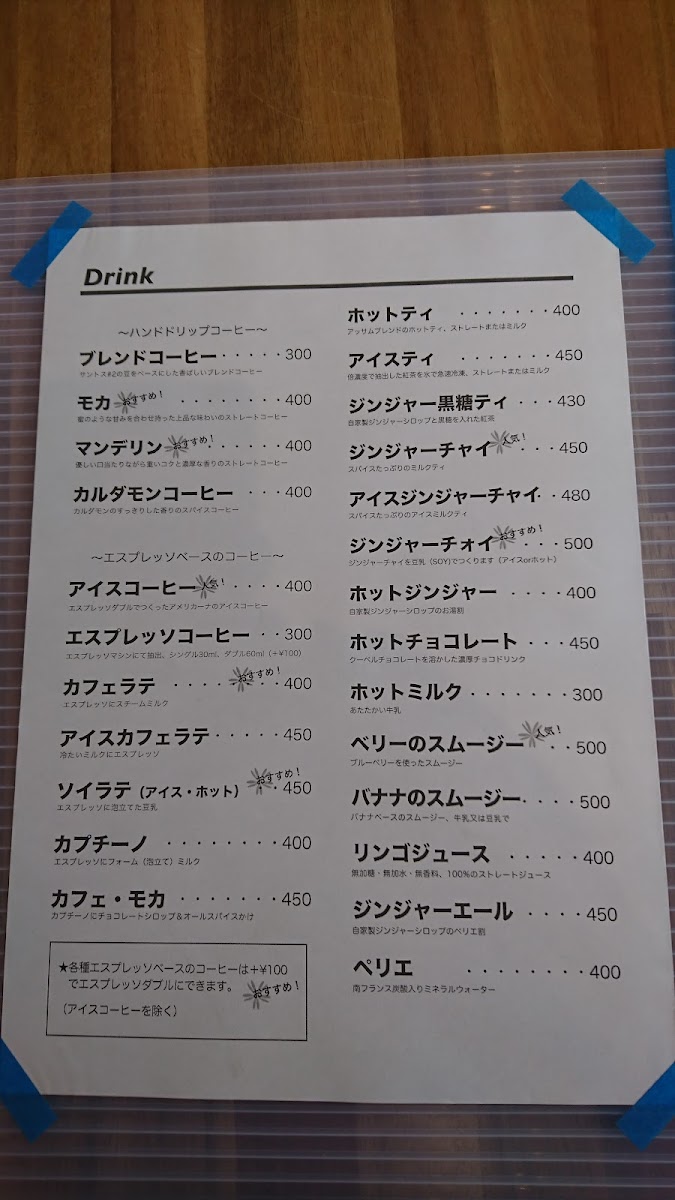 Drink
〜ハンドドリップコーヒー〜
ブレンドコーヒー・・・・・300
サントス#2の豆をベースにした香ばしいブレンドコーヒー
モカ おすすめ！ ・・・・・・・400
蜜のような甘みを合わせ持った上品な味わいのストレートコーヒー
マンデリン おすすめ！ ・・・・・400
優しい口当たりながら重いコクと濃厚な香りのストレートコーヒー
カルダモンコーヒー ・・・400
カルダモンのすっきりした香りのスパイスコーヒー
〜エスプレッソベースのコーヒー〜
アイスコーヒー 人気！ ・・・・400
エスプレッソダブルでつくったアメリカーナのアイスコーヒー
エスプレッソコーヒー ・・300
エスプレッソマシンにて抽出、シングル30ml、ダブル60ml（＋¥100）
カフェラテ ・・・・・・・ おすすめ！ 400
エスプレッソにスチームミルク
アイスカフェラテ・・・・・450
冷たいミルクにエスプレッソ
ソイラテ（アイス・ホット） おすすめ！ ・・450
エスプレッソに泡立てた豆乳
カプチーノ ・・・・・・・・400
エスプレッソにフォーム（泡立て）ミルク
カフェ・モカ ・・・・・・・450
カプチーノにチョコレートシロップ＆オールスパイスかけ
★各種エスプレッソベースのコーヒーは＋¥100
でエスプレッソダブルにできます。 おすすめ！
（アイスコーヒーを除く）
ホットティ ・・・・・・・400
アッサムブレンドのホットティ、ストレートまたはミルク
アイスティ ・・・・・・・450
倍濃度で抽出した紅茶を氷で急速冷凍、ストレートまたはミルク
ジンジャー黒糖ティ ・・・430
自家製ジンジャーシロップと黒糖を入れた紅茶
ジンジャーチャイ 人気！ ・・・450
スパイスたっぷりのミルクティ
アイスジンジャーチャイ・・480
スパイスたっぷりのアイスミルクティ
ジンジャーチォイ おすすめ！ ・・・500
ジンジャーチャイを豆乳（SOY)でつくります（アイスorホット）
ホットジンジャー ・・・・400
自家製ジンジャーシロップのお湯割
ホットチョコレート ・・・450
クーベルチョコレートを溶かした濃厚チョコドリンク
ホットミルク・・・・・・・300
あたたかい牛乳
ベリーのスムージー 人気！ ・・500
ブルーベリーを使ったスムージー
バナナのスムージー・・・・500
バナナベースのスムージー、牛乳又は豆乳で
リンゴジュース ・・・・・400
無加糖・無加水・無香料、100%のストレートジュース
ジンジャーエール ・・・・450
自家製ジンジャーシロップのペリエ割
ペリエ ・・・・・・・・400
南フランス炭酸入りミネラルウォーター